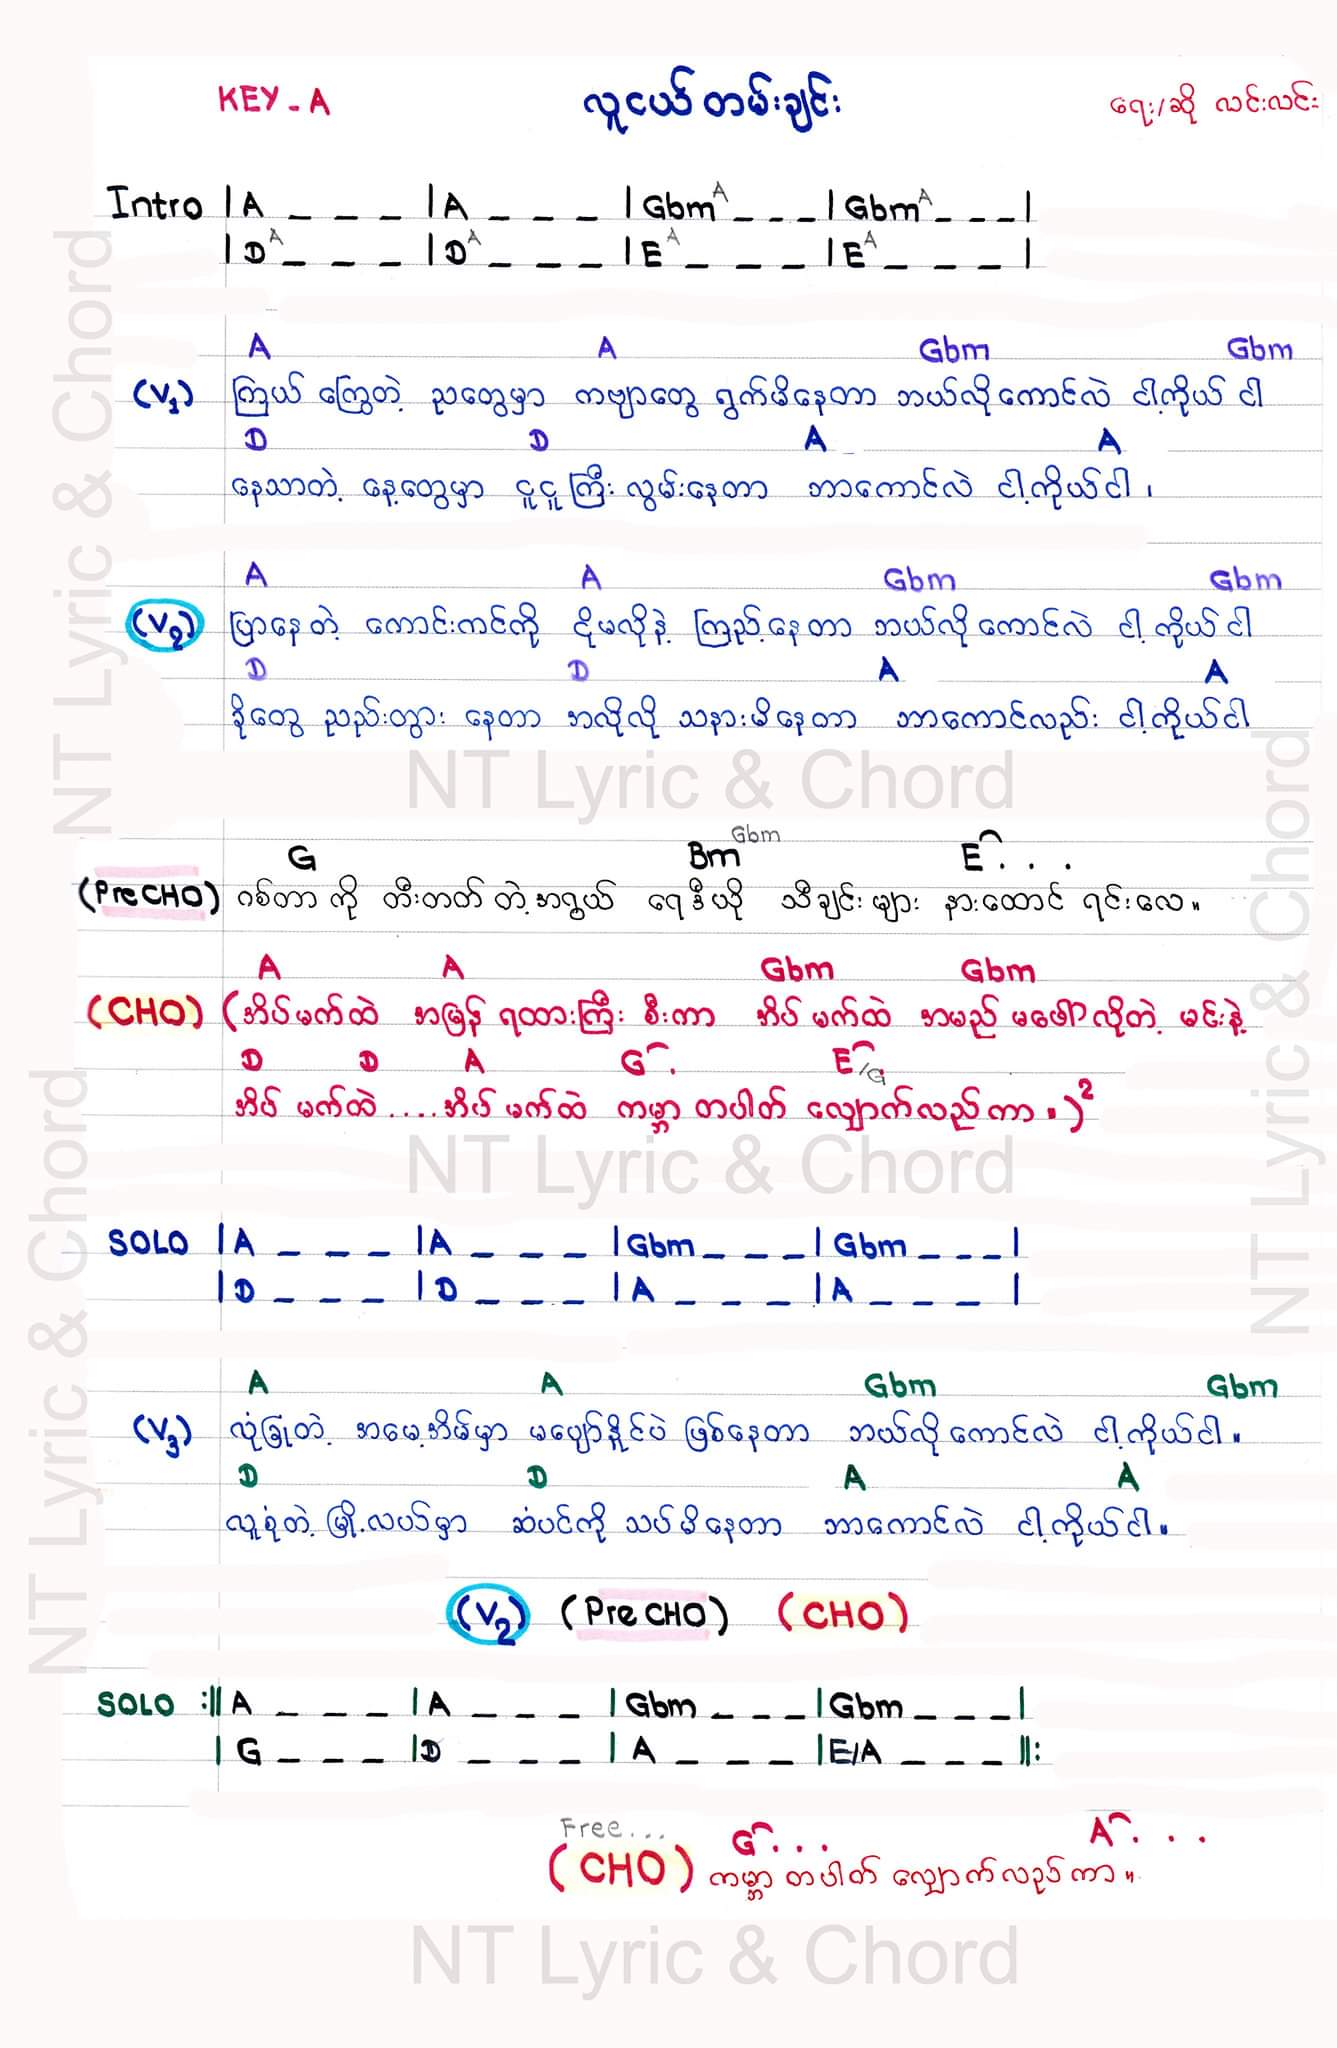 KEY - A လူငယ်တမ်းချင်း ရေး/ဆို လင်းလင်း
Intro |A _ _ _ |A _ _ _ |Gbm A _ _ _ |Gbm A _ _ _|
|D A _ _ _ |D A _ _ _ |E A _ _ _ |E A _ _ _ |
A A Gbm Gbm
(V1) ကြယ် ကြွေတဲ့ ညတွေမှာ ကဗျာတွေ ရွက်မိနေတာ ဘယ်လိုကောင်လဲ ငါ့ကိုယ် ငါ
D D A A
နေသာတဲ့ နေ့တွေမှာ ငူငူကြီး လွမ်းနေတာ ဘာကောင်လဲ ငါ့ကိုယ်ငါ ၊
A A Gbm Gbm
(V2) ပြာနေတဲ့ ကောင်းကင်ကို ငိုမလိုနဲ့ ကြည့်နေတာ ဘယ်လိုကောင်လဲ ငါ့ ကိုယ် ငါ
D D A A
ဒိုတွေ ညည်းတွား နေတာ အလိုလို သနားမိနေတာ ဘာကောင်လည်း ငါ့ကိုယ်ငါ
NT Lyric & Chord
G Bm Gbm E . . .
(Pre CHO) ဂစ်တာ ကို တီးတတ် တဲ့အရွယ် ရေဒီယို သီချင်း များ နားထောင် ရင်းလေ။
A A Gbm Gbm
(CHO) (အိပ်မက်ထဲ အမြန် ရထားကြီး စီးကာ အိပ် မက်ထဲ အမည် မဖော်လိုတဲ့ မင်းနဲ့
D D A G . E/G .
အိပ် မက်ထဲ .... အိပ် မက်ထဲ ကမ္ဘာ တပါတ် လျှောက်လည်ကာ ။)2
NT Lyric & Chord
SOLO |A _ _ _ |A _ _ _ |Gbm _ _ _| Gbm _ _ _|
|D _ _ _ |D _ _ _ |A _ _ _ |A _ _ _ |
A A Gbm Gbm
(V3) လုံခြုံတဲ့ အမေ့အိမ်မှာ မပျော်နိူင်ပဲ ဖြစ်နေတာ ဘယ်လိုကောင်လဲ ငါ့ကိုယ်ငါ။
D D A A
လူစုံတဲ့ မြို့လယ်မှာ ဆံပင်ကို သပ်မိနေတာ ဘာကောင်လဲ ငါ့ကိုယ်ငါ။
(V2) (Pre CHO) (CHO)
SOLO :||A _ _ _ |A _ _ _ |Gbm _ _ _|Gbm _ _ _|
|G _ _ _ |D _ _ _ |A _ _ _ |E/A _ _ _ ||:
Free... G . . . A . . .
(CHO) ကမ္ဘာ တပါတ် လျှောက်လည်ကာ။
NT Lyric & Chord
NT Lyric & Chord
NT Lyric & Chord
NT Lyric & Chord